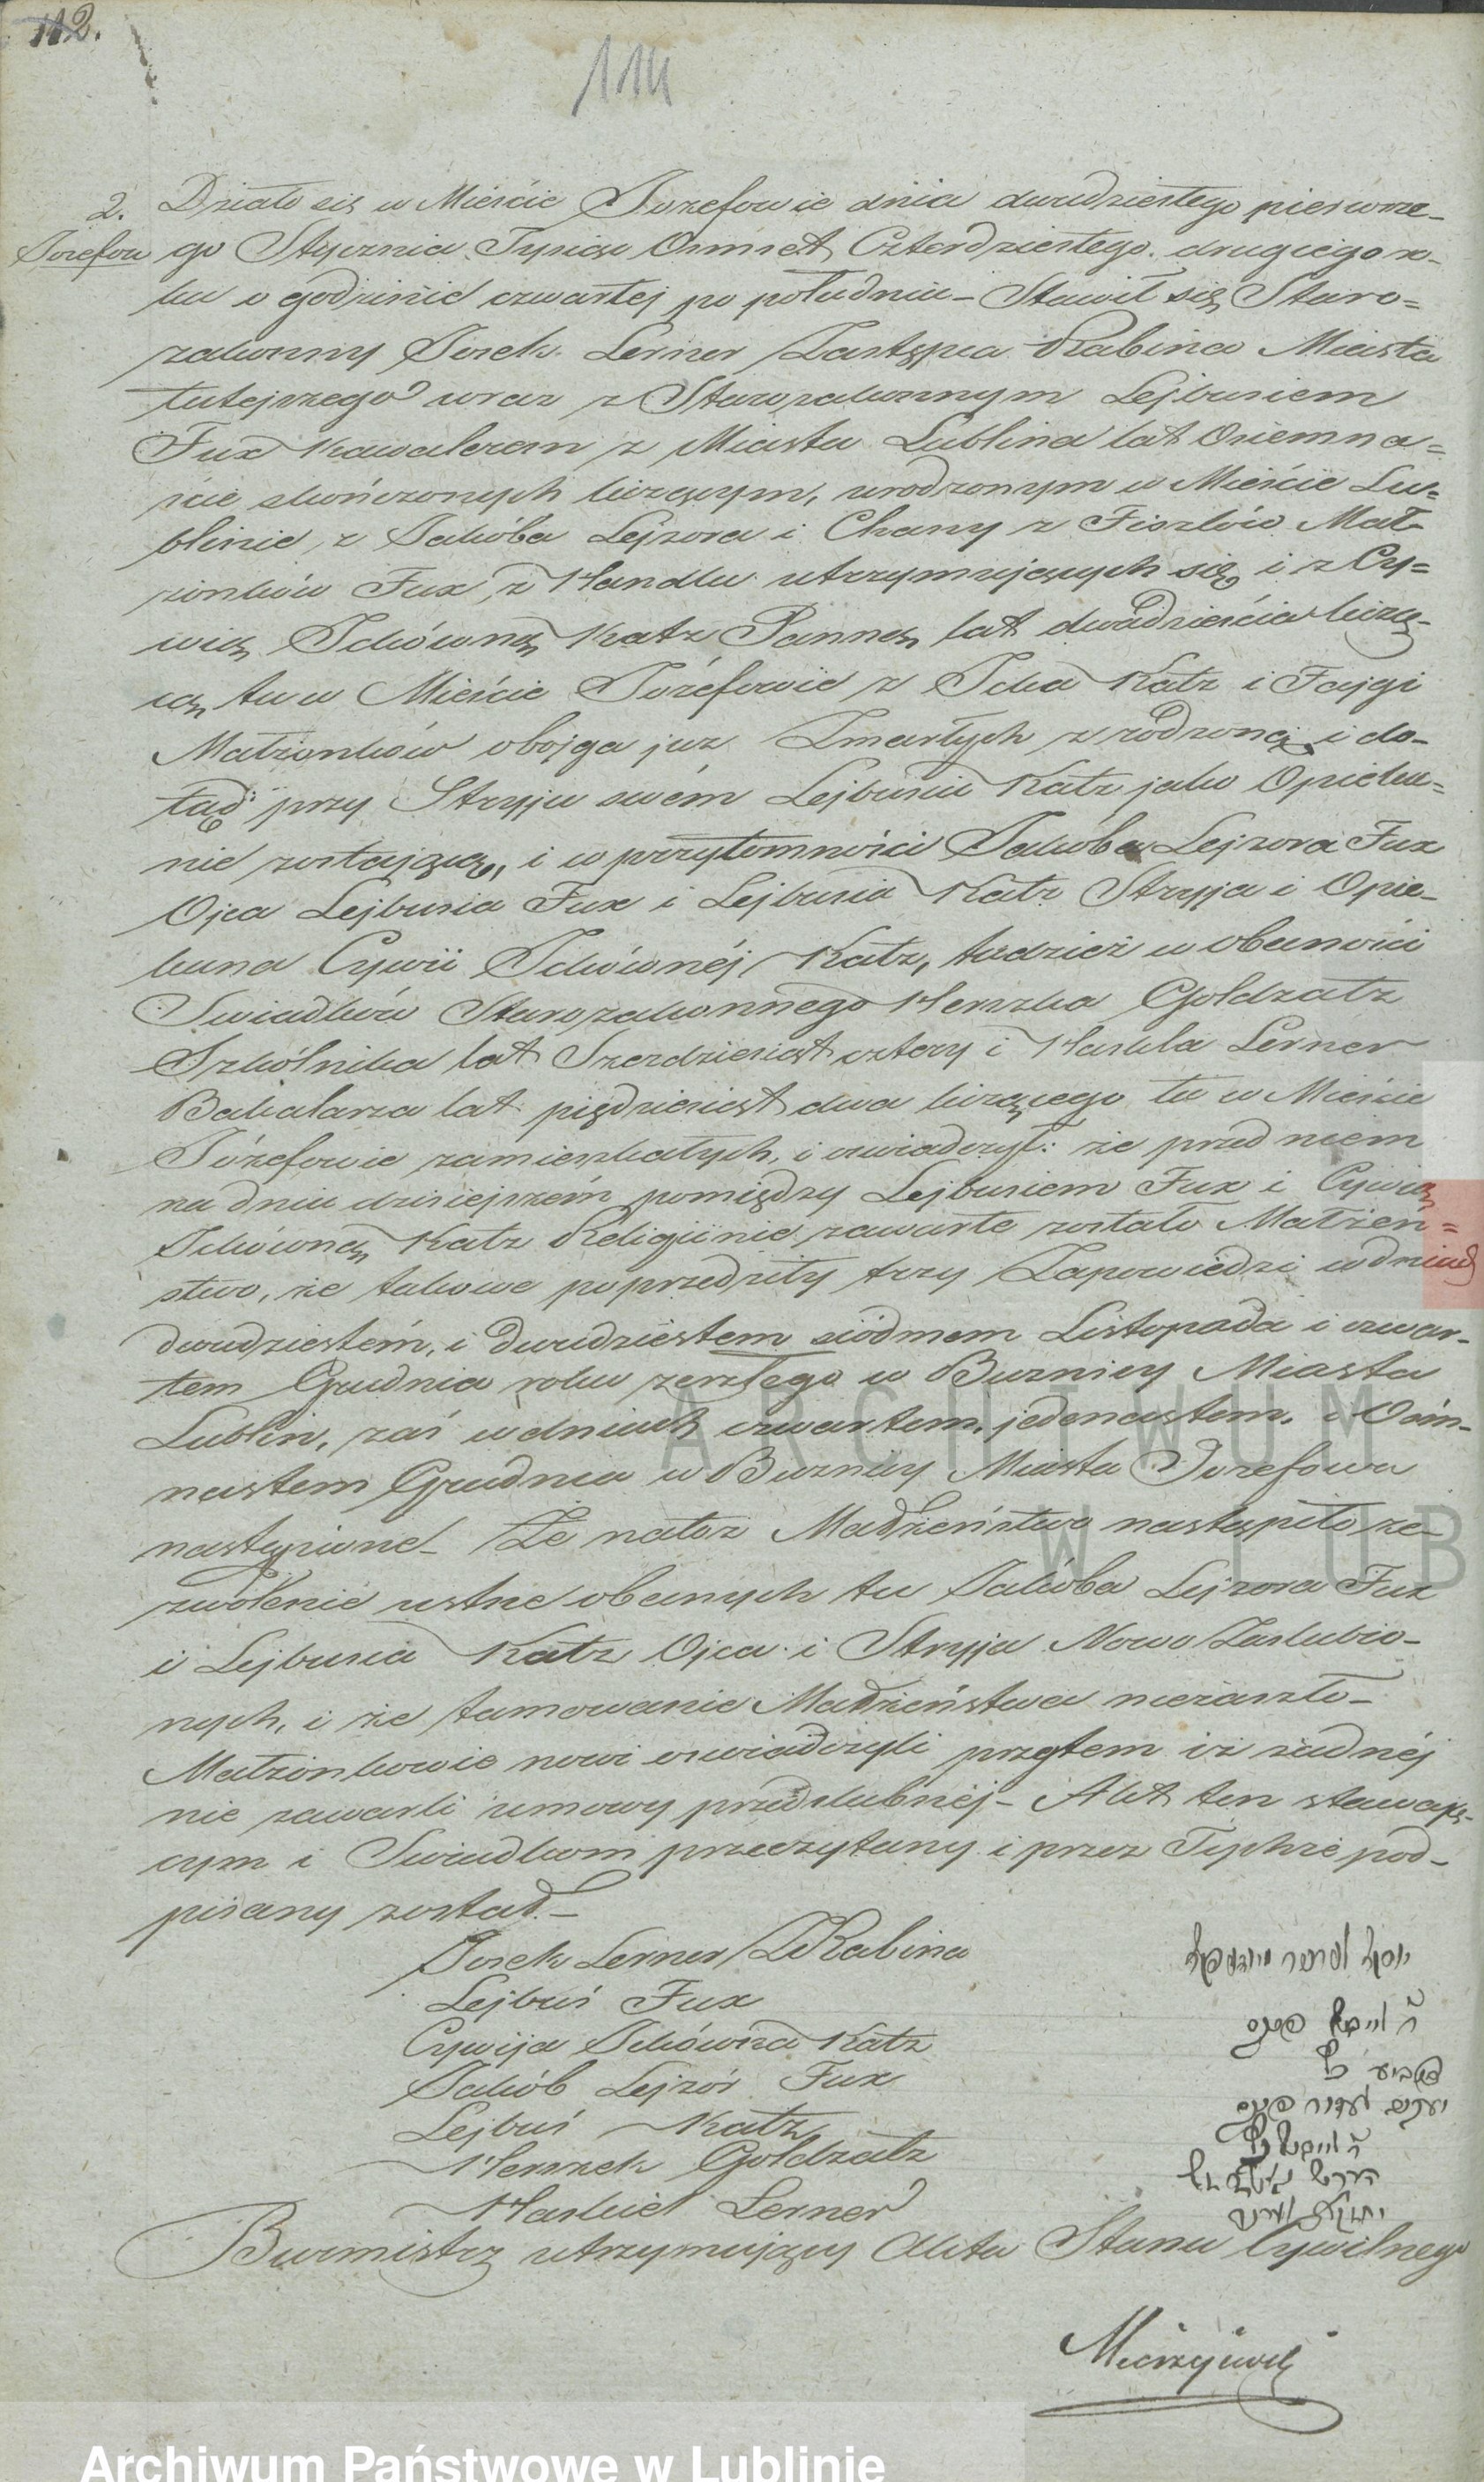 112.
114
2. Działo się w Mieście Jozefowie dnia dwudziestego pierwsze-
Jozefow go Stycznia Tysiąc Ośmset Czterdziestego drugiego ro-
ku o godzinie czwartej po południu – Stawił się Staro=
zakonny Josek Lerner Zastępca Rabina Miasta
tutejszego wraz z Starozakonnym Lejbusiem
Fux Kawalerem z Miasta Lublina lat Osiemna=
ście skończonych liczącym, urodzonym w Mieście Lu=
blinie, z Jakóba Lejzora i Chany z Fiszlów Mał-
żonków Fux, z Handlu utrzymujących się, i z Cy=
wią Ickówną Katz Panną lat dwadzieścia liczą-
cą, tu w Mieście Józefowie z Icka Katz i Fajgi
Małżonków obojga już Zmarłych zrodzoną i do-
tąd przy Stryju swém Lejbusiu Katz jako Opieku=
nie zostającą, i w przytomności Jakóba Lejzora Fux
Ojca Lejbusia Fux i Lejbusia Katz Stryja i Opie-
kuna Cywii Ickównéj Katz, tudzież w obecności
Swiadków Starozakonnego Herszka Goldzatz
Szkólnika lat Szezdziesiąt cztery i Haskla Lerner
Bakalarza lat pięćdziesiąt dwa liczącego tu w Mieście
Józefowie zamieszkałych, i oświadczył: że przed niem
na dniu dzisiejszém pomiędzy Lejbusiem Fux i Cywią
Ickówną Katz Religiinie zawarte zostało Małżeń=
stwo, że takowe poprzedziły trzy Zapowiedzi w dniach
dwudziestém, i dwudziestem siódmem Listopada i czwar-
tem Grudnia roku zeszłego w Bużnicy Miasta
Lublin, zaś w dniach czwartem, jedenastem, i Ośm-
nastem Grudnia w Bużnicy Miasta Jozefowa
nastąpione – Że na toż Małżeństwo nastąpiło ze-
zwolenie ustne obecnych tu Jakóba Lejzora Fux
i Lejbusia Katz Ojca i Stryja Nowo Zaslubio-
nych, i że tamowanie Małżeństwa niezaszło –
Małżonkowie nowi oświadczyli przytem iż żadnéj
nie zawarli umowy przedslubnéj – Akt ten stawają-
cym i Swiadkom przeczytany i przez Tychże pod-
pisany został. –
Josek Lerner Z Rabina
Lejbuś Fux
Cywija Ickówna Katz
Jakób Lejzór Fux
Lejbuś Katz
Herszek Goldzatz
Haskiel Lerner
Burmistrz utrzymujący Akta Stanu Cywilnego
ARCHIWUM
W LUB
Archiwum Państwowe w Lublinie